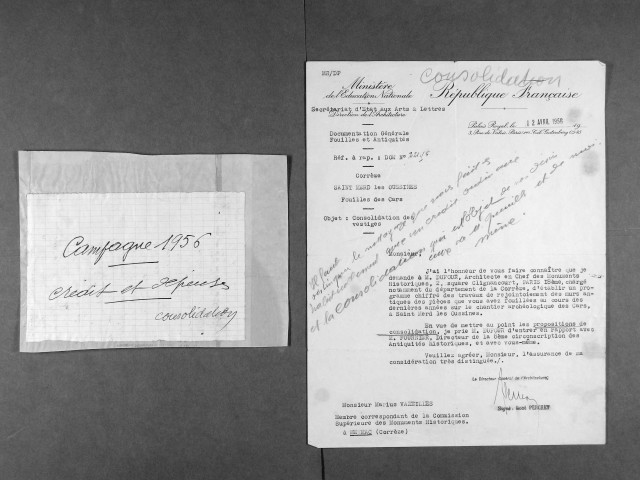 Campagne 1956
crédit et dépenses
consolidation
RS/DP
consolidation
Ministère
de l'Education Nationale
République Française
Secrétariat d'Etat aux Arts & Lettres
Direction de l'Architecture
Palais Royal, le 12 AVRIL 1956 19
3, Rue de Valois, Paris
Documentation Générale
Fouilles et Antiquités
Réf. à rap. : DGM N°
Corrèze
SAINT MERD les OUSSINES
Fouilles des Cars
Objet : Consolidation des
vestiges
Il faut
et la consolidation qui est l'objet de
même.
Monsieur,
J'ai l'honneur de vous faire connaître que je
demande à M. DUFOUR, Architecte en Chef des Monuments
Historiques, 2, square Clignancourt, PARIS 18ème, chargé
notamment du département de la Corrèze, d'établir un pro-
gramme chiffré des travaux de rejointoiement des murs anti-
ques des pièces que vous avez fouillées au cours des
dernières années sur le chantier archéologique des Cars,
à Saint Merd les Oussines.
En vue de mettre au point les propositions de
consolidation, je prie M. DUFOUR d'entrer en rapport avec
M. FOURNIER, Directeur de la 8ème circonscription des
Antiquités Historiques, et avec vous-même.
Veuillez agréer, Monsieur, l'assurance de ma
considération très distinguée./.
Le Directeur Général de l'Architecture,
Signé: René PERCHET
Monsieur Marius VAZEILLES
Membre correspondant de la Commission
Supérieure des Monuments Historiques.
à MEYMAC (Corrèze)